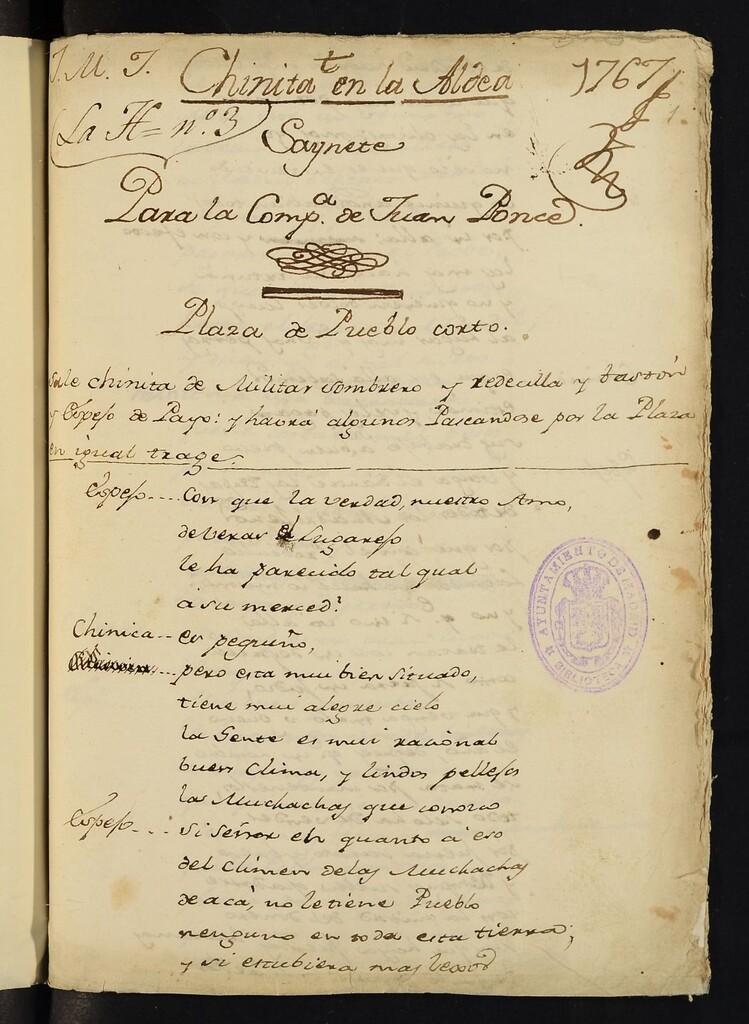 J. M. J. Chinita en la Aldea 1767
La H= nº. 3
1.
Saynete
Para la Comp.ª de Juan Ponce.
Plaza de Pueblo corto.
Sale chinita de Militar sombrero y redecilla y bastón
y Espejo de Payo: y havrá algunos Paseandose por la Plaza
en igual trage.
Espejo.... Con que la verdad, nuestro Amo,
deveras el Lugarejo
le ha parecido tal qual
â su merced?
Chinica -- es pequeño,
pero esta mui bien situado,
tiene mui alegre cielo
la Gente es mui racional
buen Clima, y lindos pellejos
las Muchachas que conozco
Espejo... Si Señor eh quanto â eso
del climen delas Muchachas
de acá, no le tiene Pueblo
nenguno en toda esta tierra;
y si estubiera mas
AYUNTAMIENTO DE MADRID
BIBLIOTECA